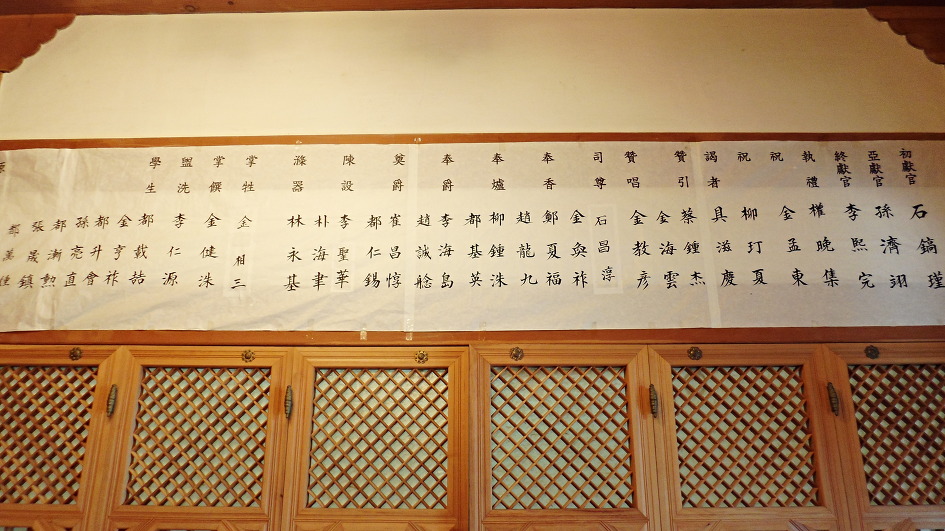 初獻官 石鎬瑾
亞獻官 孫濟翊
終獻官 李熙完
執禮 權晚集
祝 金孟東
祝 柳玎夏
謁者 具滋慶
贊引 蔡鍾杰
金海雲
贊唱 金教彦
司尊 石昌淳
金奐祚
奉香 鄭夏福
趙龍九
奉爐 柳鍾洙
都基英
奉爵 李海島
趙誠
奠爵 崔昌惇
都仁錫
陳設 李聖華
朴海聿
滌器 林永基
掌牲 金相三
掌饌 金健洙
盥洗 李仁源
學生 都載喆
金亨祚
都升會
孫亮直
都漸勲
張晟鎮
都美